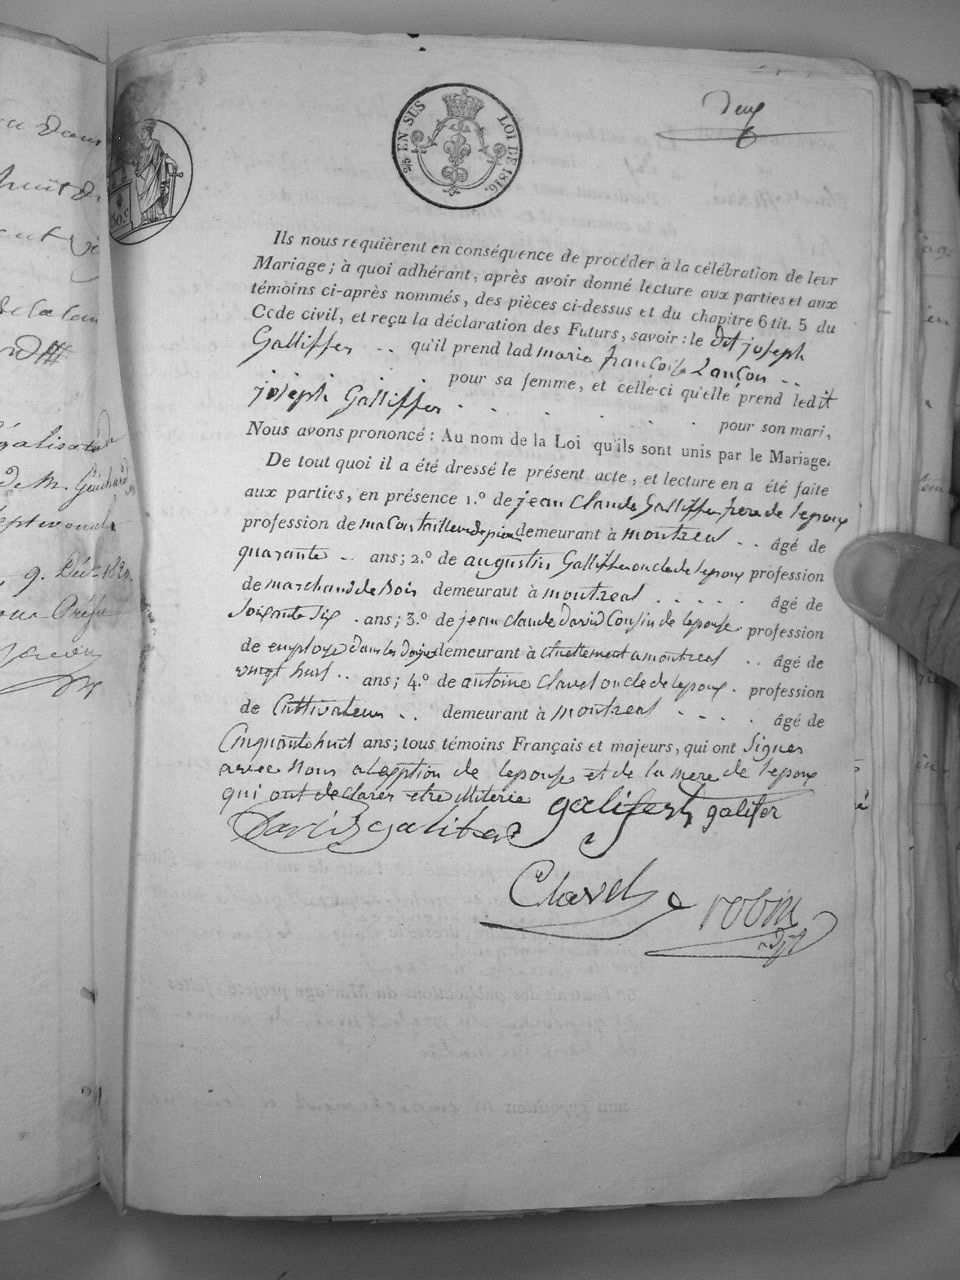 Deux
25 EN SUS LOI DE 1816.
Ils nous requièrent en conséquence de procéder à la célébration de leur
Mariage ; à quoi adhérant, après avoir donné lecture aux parties et aux
témoins ci-après nommés, des pièces ci-dessus et du chapitre 6 tit. 5 du
Code civil, et reçu la déclaration des Futurs, savoir : le dit joseph
Galliffer .. qu'il prend lad marie francoise Lançon ..
pour sa femme, et celle-ci qu'elle prend ledit
joseph Galliffer . . . . . . pour son mari,
Nous avons prononcé : Au nom de la Loi qu'ils sont unis par le Mariage.
De tout quoi il a été dressé le présent acte, et lecture en a été faite
aux parties, en présence 1.º de jean Claude Galliffer frere de lepoux
profession de macon tailleur de pierre demeurant à montreal .. âgé de
quarante .. ans ; 2.º de augustin Galliffer oncle de lepoux profession
de marchand de Bois demeurant à montreal . . . . . âgé de
Soixante Six . ans ; 3.º de jean claude david Cousin de lepouse . profession
de employe dans les demeurant à actuellement a montreal .. âgé de
vingt huit .. ans ; 4.º de antoine Clavel oncle de lepoux . profession
de Cultivateur .. demeurant à montreal . . . . âgé de
Cinquante huit ans ; tous témoins Français et majeurs, qui ont Signer
avec Nous a lexption de lepouse et de la mere de lepoux
qui ont declarer etre
David galifer galifert galifer
Clavel robin